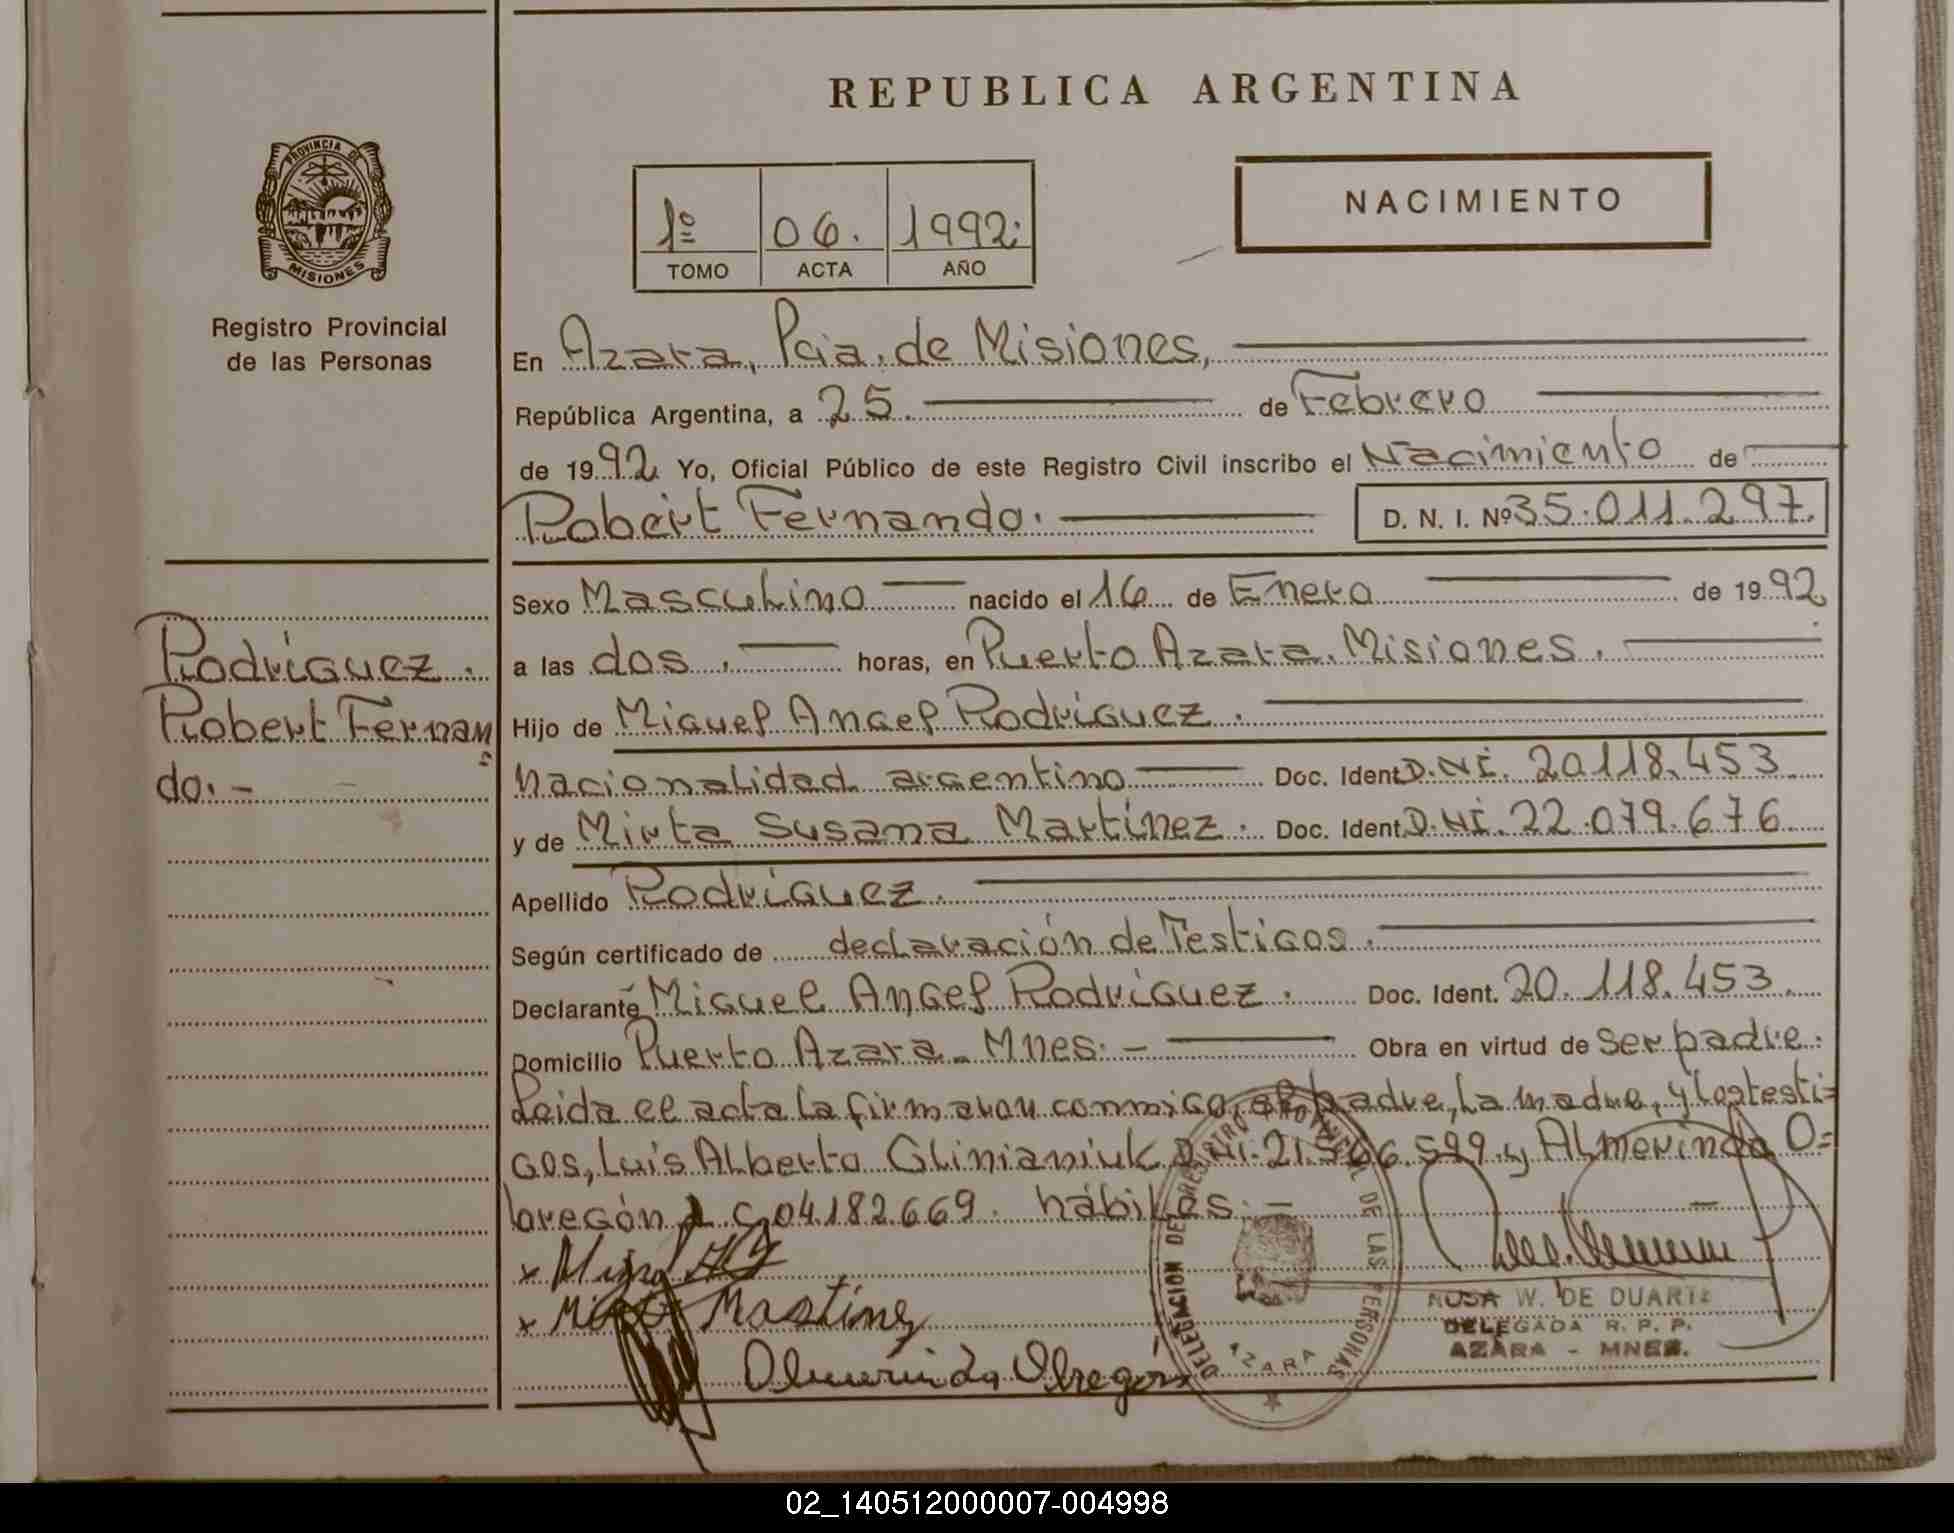 REPUBLICA ARGENTINA
PROVINCIA DE
MISIONES
Registro Provincial
de las Personas
1º 06. 1992.
TOMO ACTA AÑO
NACIMIENTO
En Azara, Pcia. de Misiones,
República Argentina, a 25. de Febrero
de 1992 Yo, Oficial Público de este Registro Civil inscribo el Nacimiento de
Robert Fernando. D. N. I. Nº 35.011.297.
Sexo Masculino nacido el 16 de Enero de 1992
a las dos. horas, en Puerto Azara. Misiones.
Hijo de Miguel Angel Rodríguez.
nacionalidad argentino Doc. Ident. D.N.I. 20.118.453
y de Mirta Susana Martínez. Doc. Ident. D.N.I. 22.079.676
Apellido Rodríguez.
Según certificado de declaración de Testigos.
Declarante Miguel Angel Rodríguez. Doc. Ident. 20.118.453.
Domicilio Puerto Azara - Mnes. - Obra en virtud de ser padre.
Leida el acta la firmaron conmigo, el padre, la madre, y los testi=
gos, Luis Alberto Glinianiuk D.N.I. 21.566.599 y Almerinda O=
bregón L C 04.182.669. hábiles. -
Rodríguez.
Robert Fernan=
do. -
x Miguel
x Mirta Martinez
Almerinda Obregón
DELEGACION DEL REGISTRO PROVINCIAL DE LAS PERSONAS
AZARA
ROSA W. DE DUARTE
DELEGADA R. P. P.
AZARA - MNES.
02_140512000007-004998